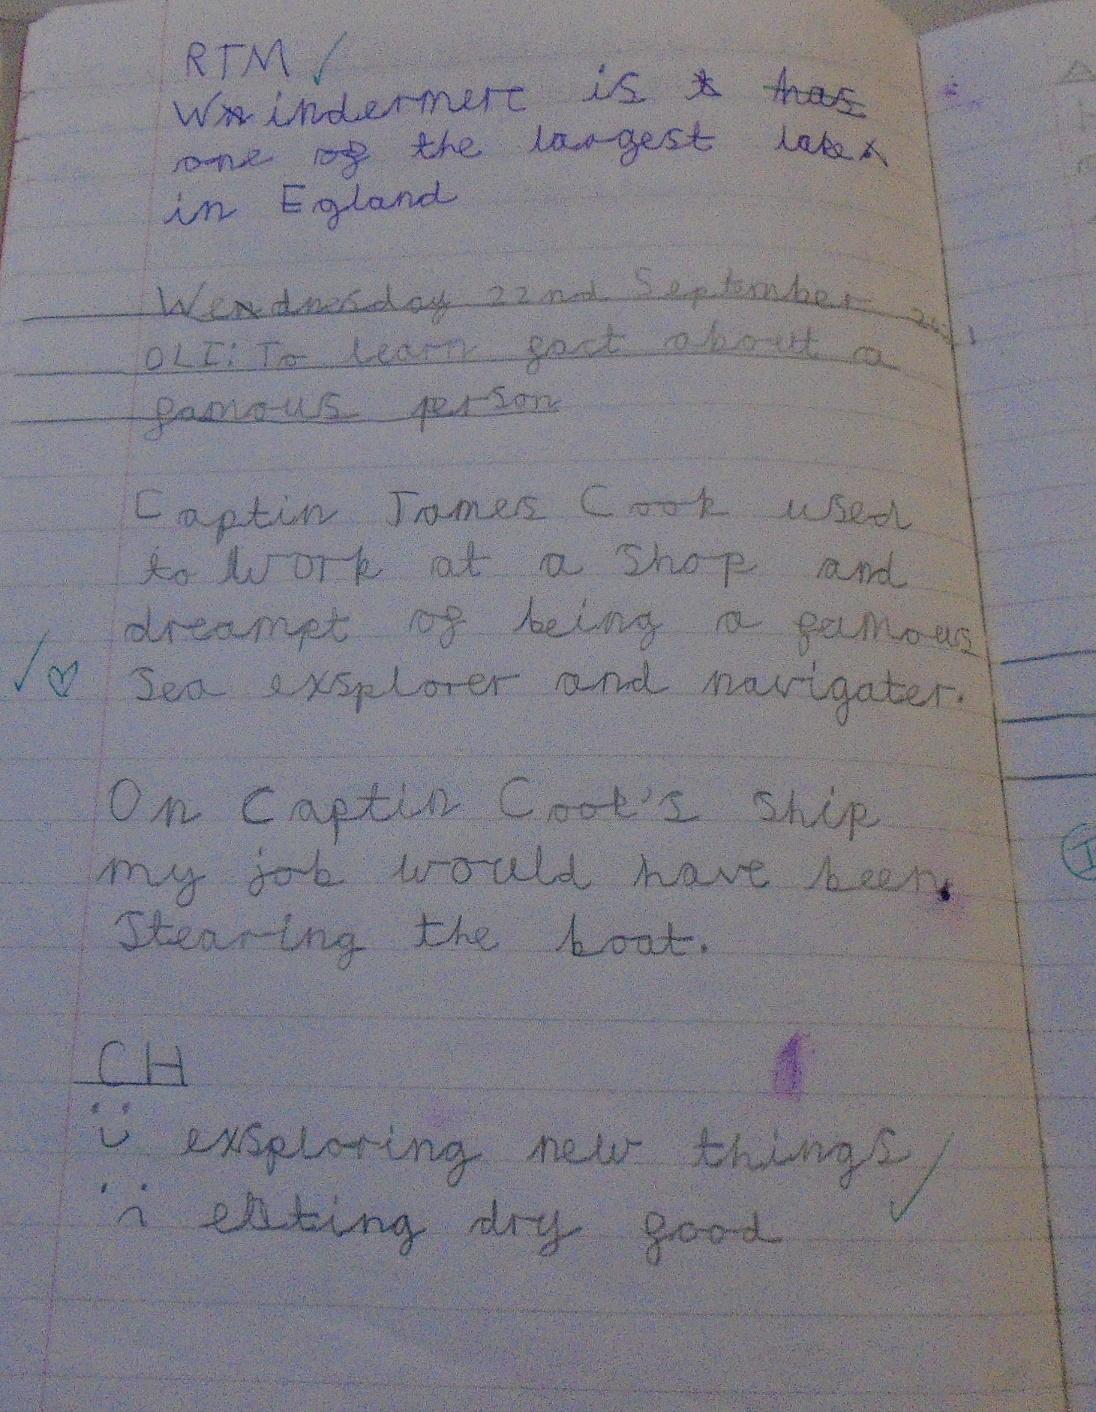 RTM
Windermere is
one of the largest lake
in Egland
Wendnesday 22nd September 2021
OLI: To learn fact about a
famous person
Captin James Cook used
to work at a shop and
dreampt of being a famous
Sea exsplorer and navigater.
On Captin Cook's ship
my job would have been
Stearing the boat.
CH
exsploring new things
eating dry good